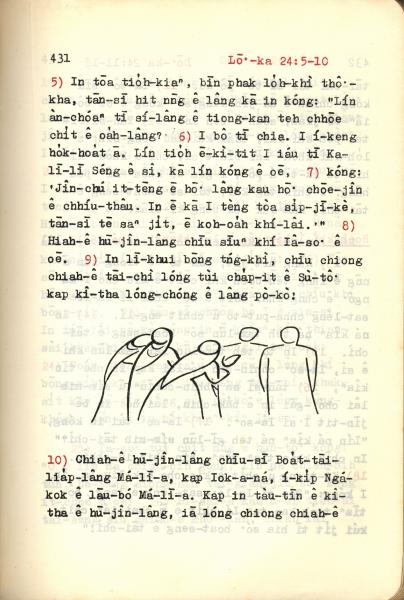 431 Lō͘-ka 24:5-10
5) In tōa tio̍h-kiaⁿ, bīn phak lo̍h-khì thô͘-
kha, tān-sī hit nn̄g ê lâng kā in kóng: "Lín
àn-chóaⁿ tī sí-lâng ê tiong-kan teh chhōe
chi̍t ê oa̍h-lâng? 6) I bô tī chia. I í-keng
ho̍k-hoa̍t ā. Lín tio̍h ē-kì-tit I iáu tī Ka-
lī-lī Séng ê sî, kā lín kóng ê oē, 7) kóng:
'Jîn-chú it-tēng ē hō͘ lâng kau hō͘ chōe-jîn
ê chhíu-thâu. In ē kā I tèng tòa si̍p-jī-kè,
tān-sī tē saⁿ ji̍t, ē koh-oa̍h khí-lâi.'" 8)
Hiah-ê hū-jîn-lâng chīu siūⁿ khí Iâ-so͘ ê
oē. 9) In lī-khui bōng tńg-khì, chīu chiong
chiah-ê tāi-chì lóng tùi cha̍p-it ê Sù-tô͘
kap kî-tha lóng-chóng ê lâng pò-kò:
10) Chiah-ê hū-jîn-lâng chīu-sī Boa̍t-tāi-
lia̍p-lâng Má-lī-a, kap Iok-a-ná, í-ki̍p Ngá-
kok ê lāu-bó Má-lī-a. Kap in tàu-tīn ê kî-
tha ê hū-jîn-lâng, iā lóng chiong chiah-ê